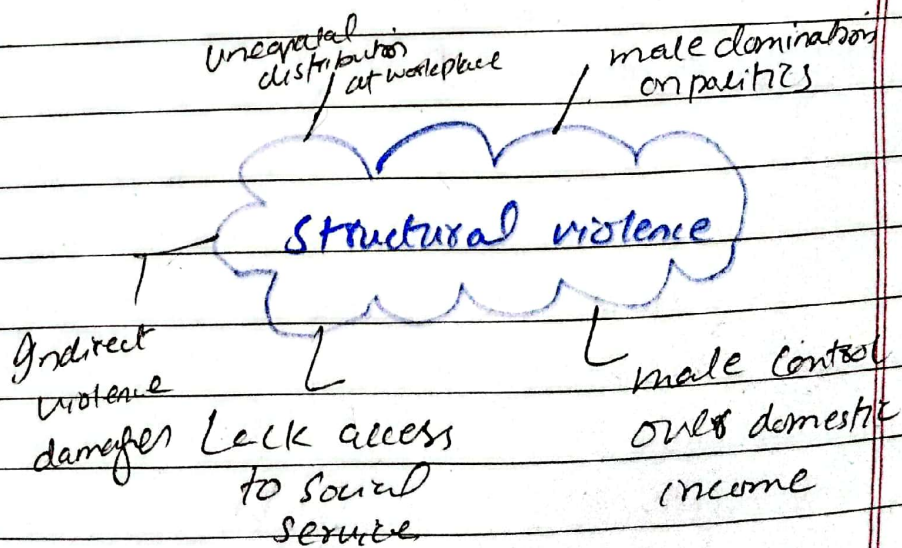 unequatal
distribution
at workplace
male domination
on palitics
Structural violence
Indirect
violence
damages
Lack access
to social
service
male control
over domestic
income